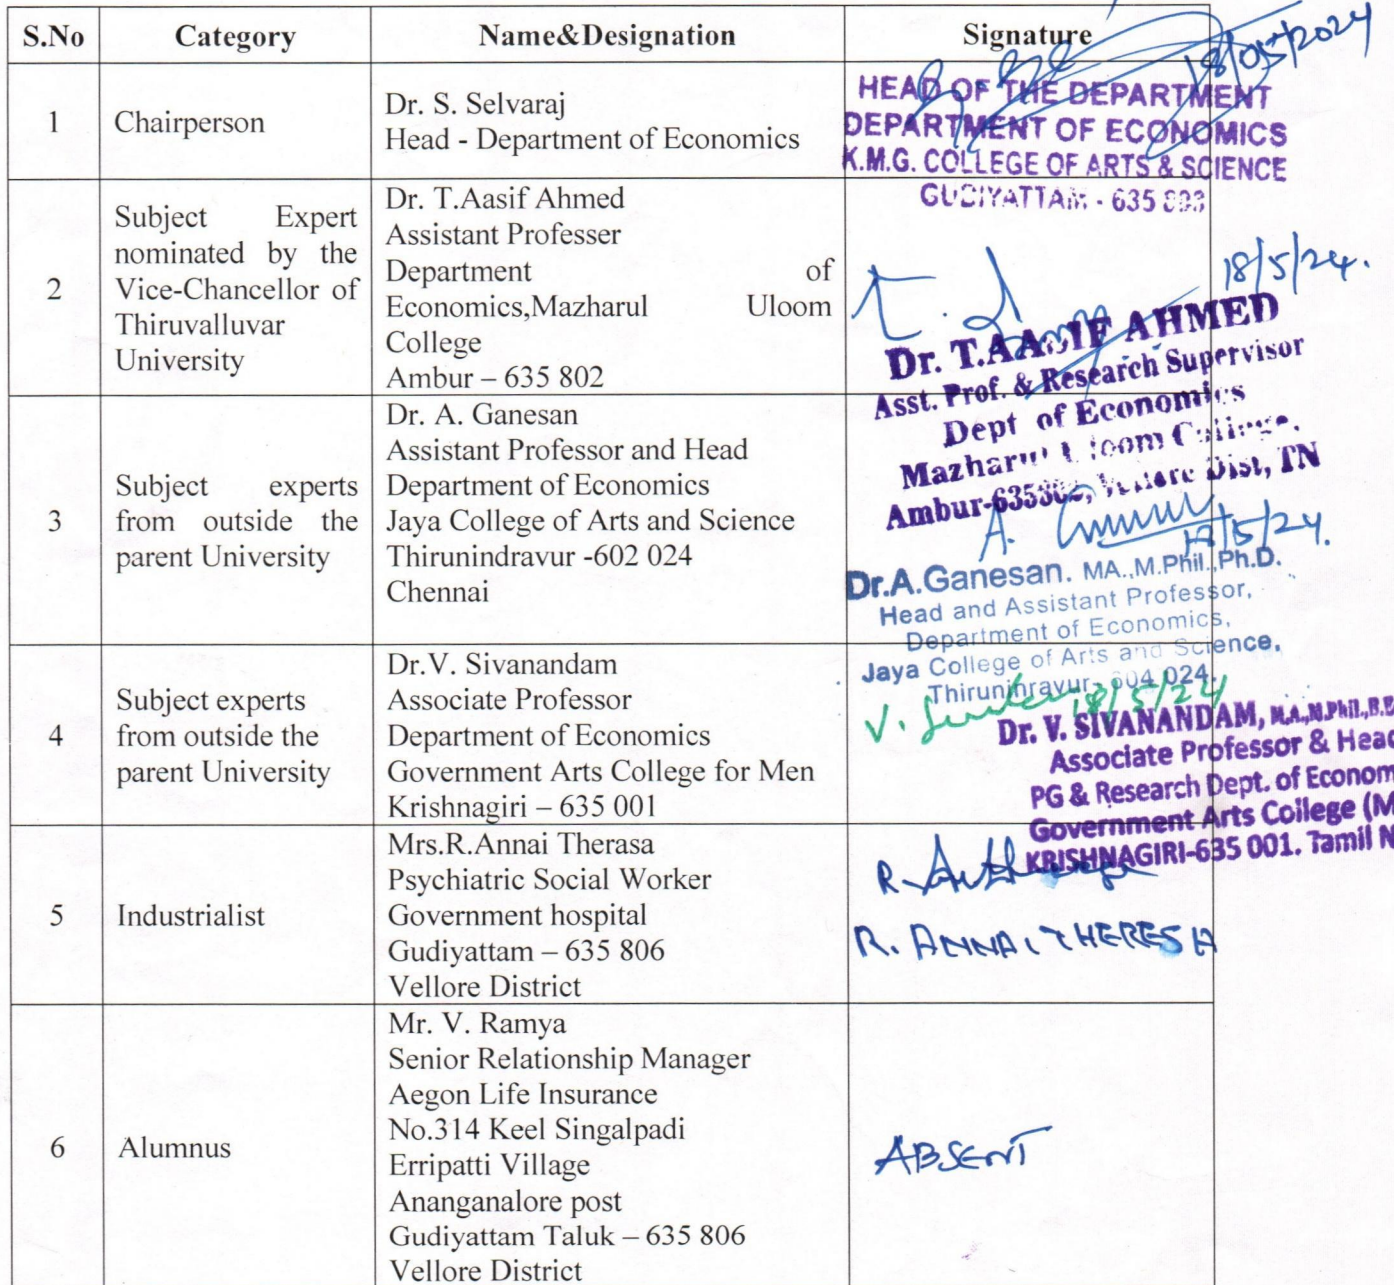 S.No Category Name&Designation Signature
18/05/2024
1 Chairperson
Dr. S. Selvaraj
Head - Department of Economics
HEAD OF THE DEPARTMENT
DEPARTMENT OF ECONOMICS
K.M.G. COLLEGE OF ARTS & SCIENCE
GUDIYATTAM - 635 803
2
Subject Expert
nominated by the
Vice-Chancellor of
Thiruvalluvar
University
Dr. T.Aasif Ahmed
Assistant Professer
Department of
Economics,Mazharul Uloom
College
Ambur – 635 802
18/5/24.
Dr. T.AASIF AHMED
Asst. Prof. & Research Supervisor
Dept of Economics
Mazharul Uloom College,
Ambur-635802, Vellore Dist, TN
3
Subject experts
from outside the
parent University
Dr. A. Ganesan
Assistant Professor and Head
Department of Economics
Jaya College of Arts and Science
Thirunindravur -602 024
Chennai
A.
18/5/24.
Dr.A.Ganesan. MA.,M.Phil.,Ph.D.
Head and Assistant Professor,
Department of Economics,
Jaya College of Arts and Science,
Thiruninravur- 602 024.
4
Subject experts
from outside the
parent University
Dr.V. Sivanandam
Associate Professor
Department of Economics
Government Arts College for Men
Krishnagiri – 635 001
V. 18/5/24
Dr. V. SIVANANDAM, M.A.,M.Phil.,B.E
Associate Professor & Head
PG & Research Dept. of Econom
Government Arts College (M
KRISHNAGIRI-635 001. Tamil N
5 Industrialist
Mrs.R.Annai Therasa
Psychiatric Social Worker
Government hospital
Gudiyattam – 635 806
Vellore District
R.
R. ANNAI THERESA
6 Alumnus
Mr. V. Ramya
Senior Relationship Manager
Aegon Life Insurance
No.314 Keel Singalpadi
Erripatti Village
Ananganalore post
Gudiyattam Taluk – 635 806
Vellore District
ABSENT